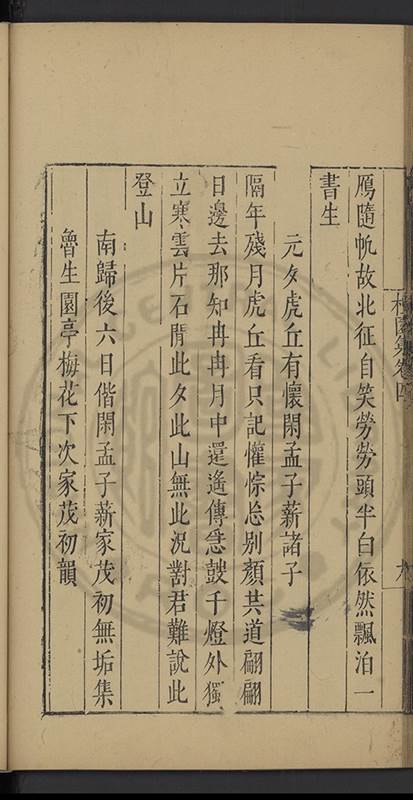 鴈隨帆故北征自笑勞勞頭半白依然飄泊一
書生
元夕虎丘有懷閑孟子薪諸子
隔年殘月虎丘看只記懽悰忘別顏共道翩翩
日邊去那知冉冉月中還遙傳急鼓千燈外獨
立寒雲片石間此夕此山無此況對君難說此
登山
南歸後六日偕閑孟子薪家茂初無垢集
魯生園亭梅花下次家茂初韻
園集卷四